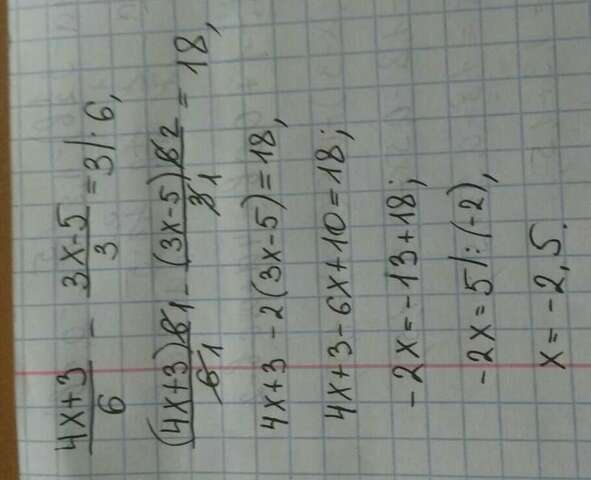 (4x+3)/6 - (3x-5)/3 = 3 | · 6,
(4x+3)6 1/6 1 - (3x-5)6 2/3 1 = 18,
4x+3 - 2(3x-5) = 18,
4x+3 - 6x+10 = 18;
-2x = -13+18;
-2x = 5 | : (-2),
x = -2,5.